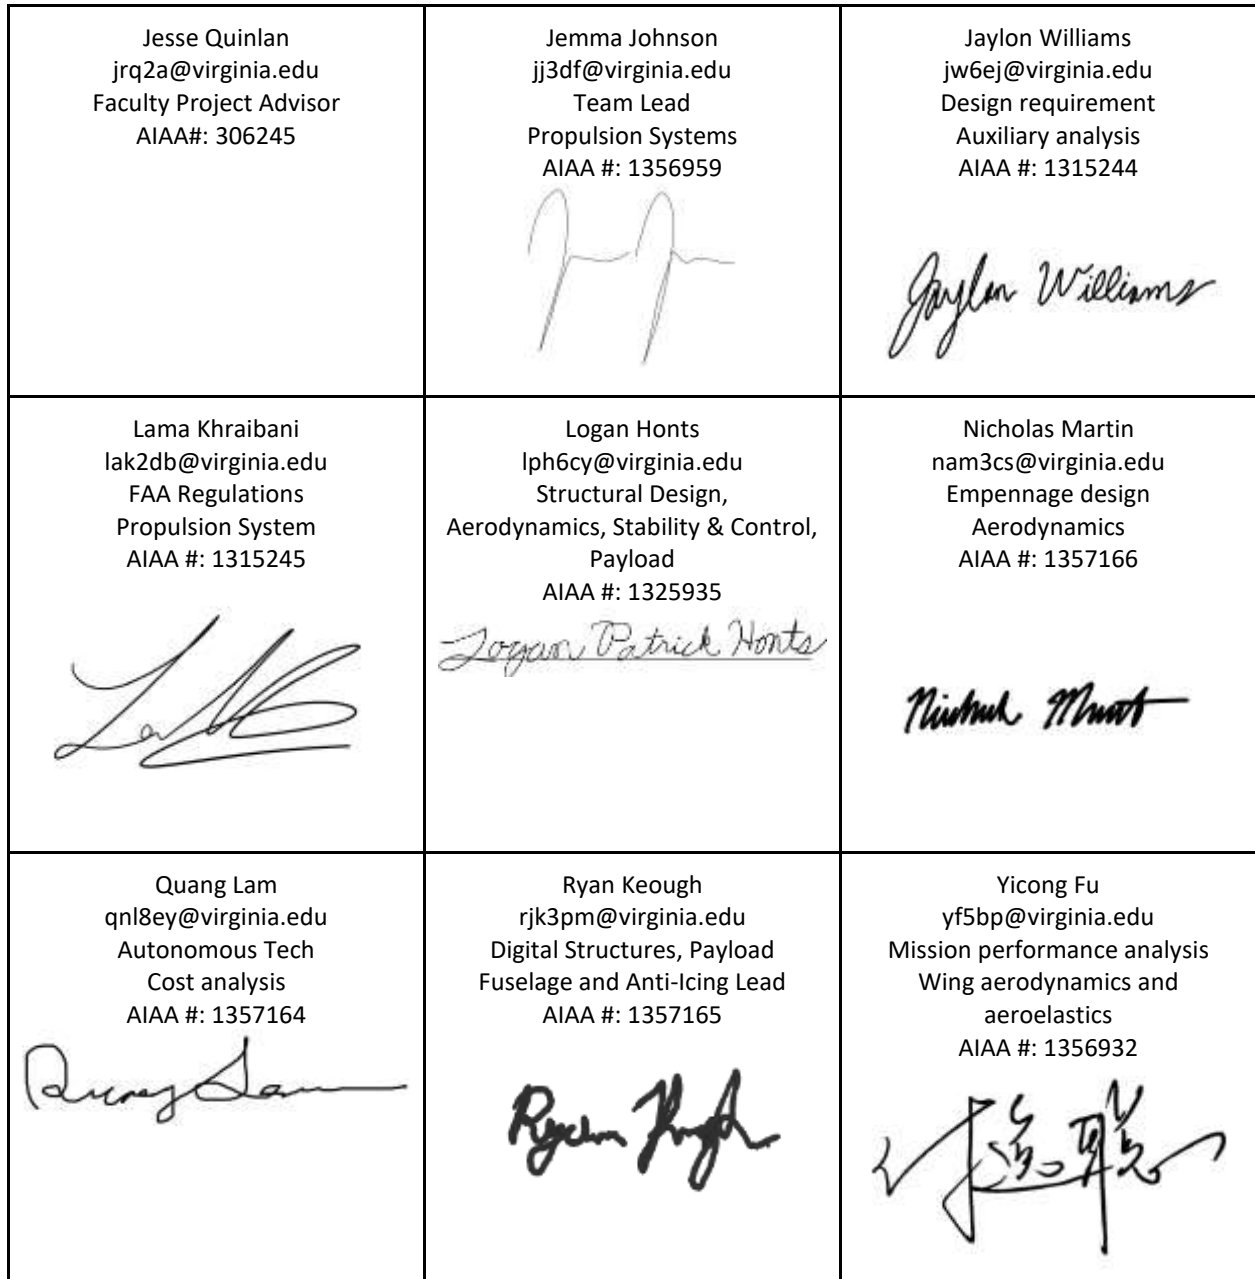 Jesse Quinlan
jrq2a@virginia.edu
Faculty Project Advisor
AIAA#: 306245
Jemma Johnson
jj3df@virginia.edu
Team Lead
Propulsion Systems
AIAA #: 1356959
Jaylon Williams
jw6ej@virginia.edu
Design requirement
Auxiliary analysis
AIAA #: 1315244
Jaylon Williams
Lama Khraibani
lak2db@virginia.edu
FAA Regulations
Propulsion System
AIAA #: 1315245
Logan Honts
lph6cy@virginia.edu
Structural Design,
Aerodynamics, Stability & Control,
Payload
AIAA #: 1325935
Logan Patrick Honts
Nicholas Martin
nam3cs@virginia.edu
Empennage design
Aerodynamics
AIAA #: 1357166
Quang Lam
qnl8ey@virginia.edu
Autonomous Tech
Cost analysis
AIAA #: 1357164
Quang Lam
Ryan Keough
rjk3pm@virginia.edu
Digital Structures, Payload
Fuselage and Anti-Icing Lead
AIAA #: 1357165
Yicong Fu
yf5bp@virginia.edu
Mission performance analysis
Wing aerodynamics and
aeroelastics
AIAA #: 1356932